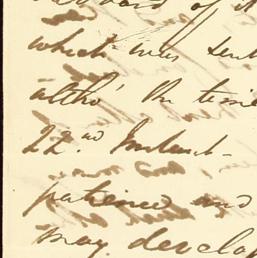 which was sent
altho' the time
22nd Instant-
patience and
may develop